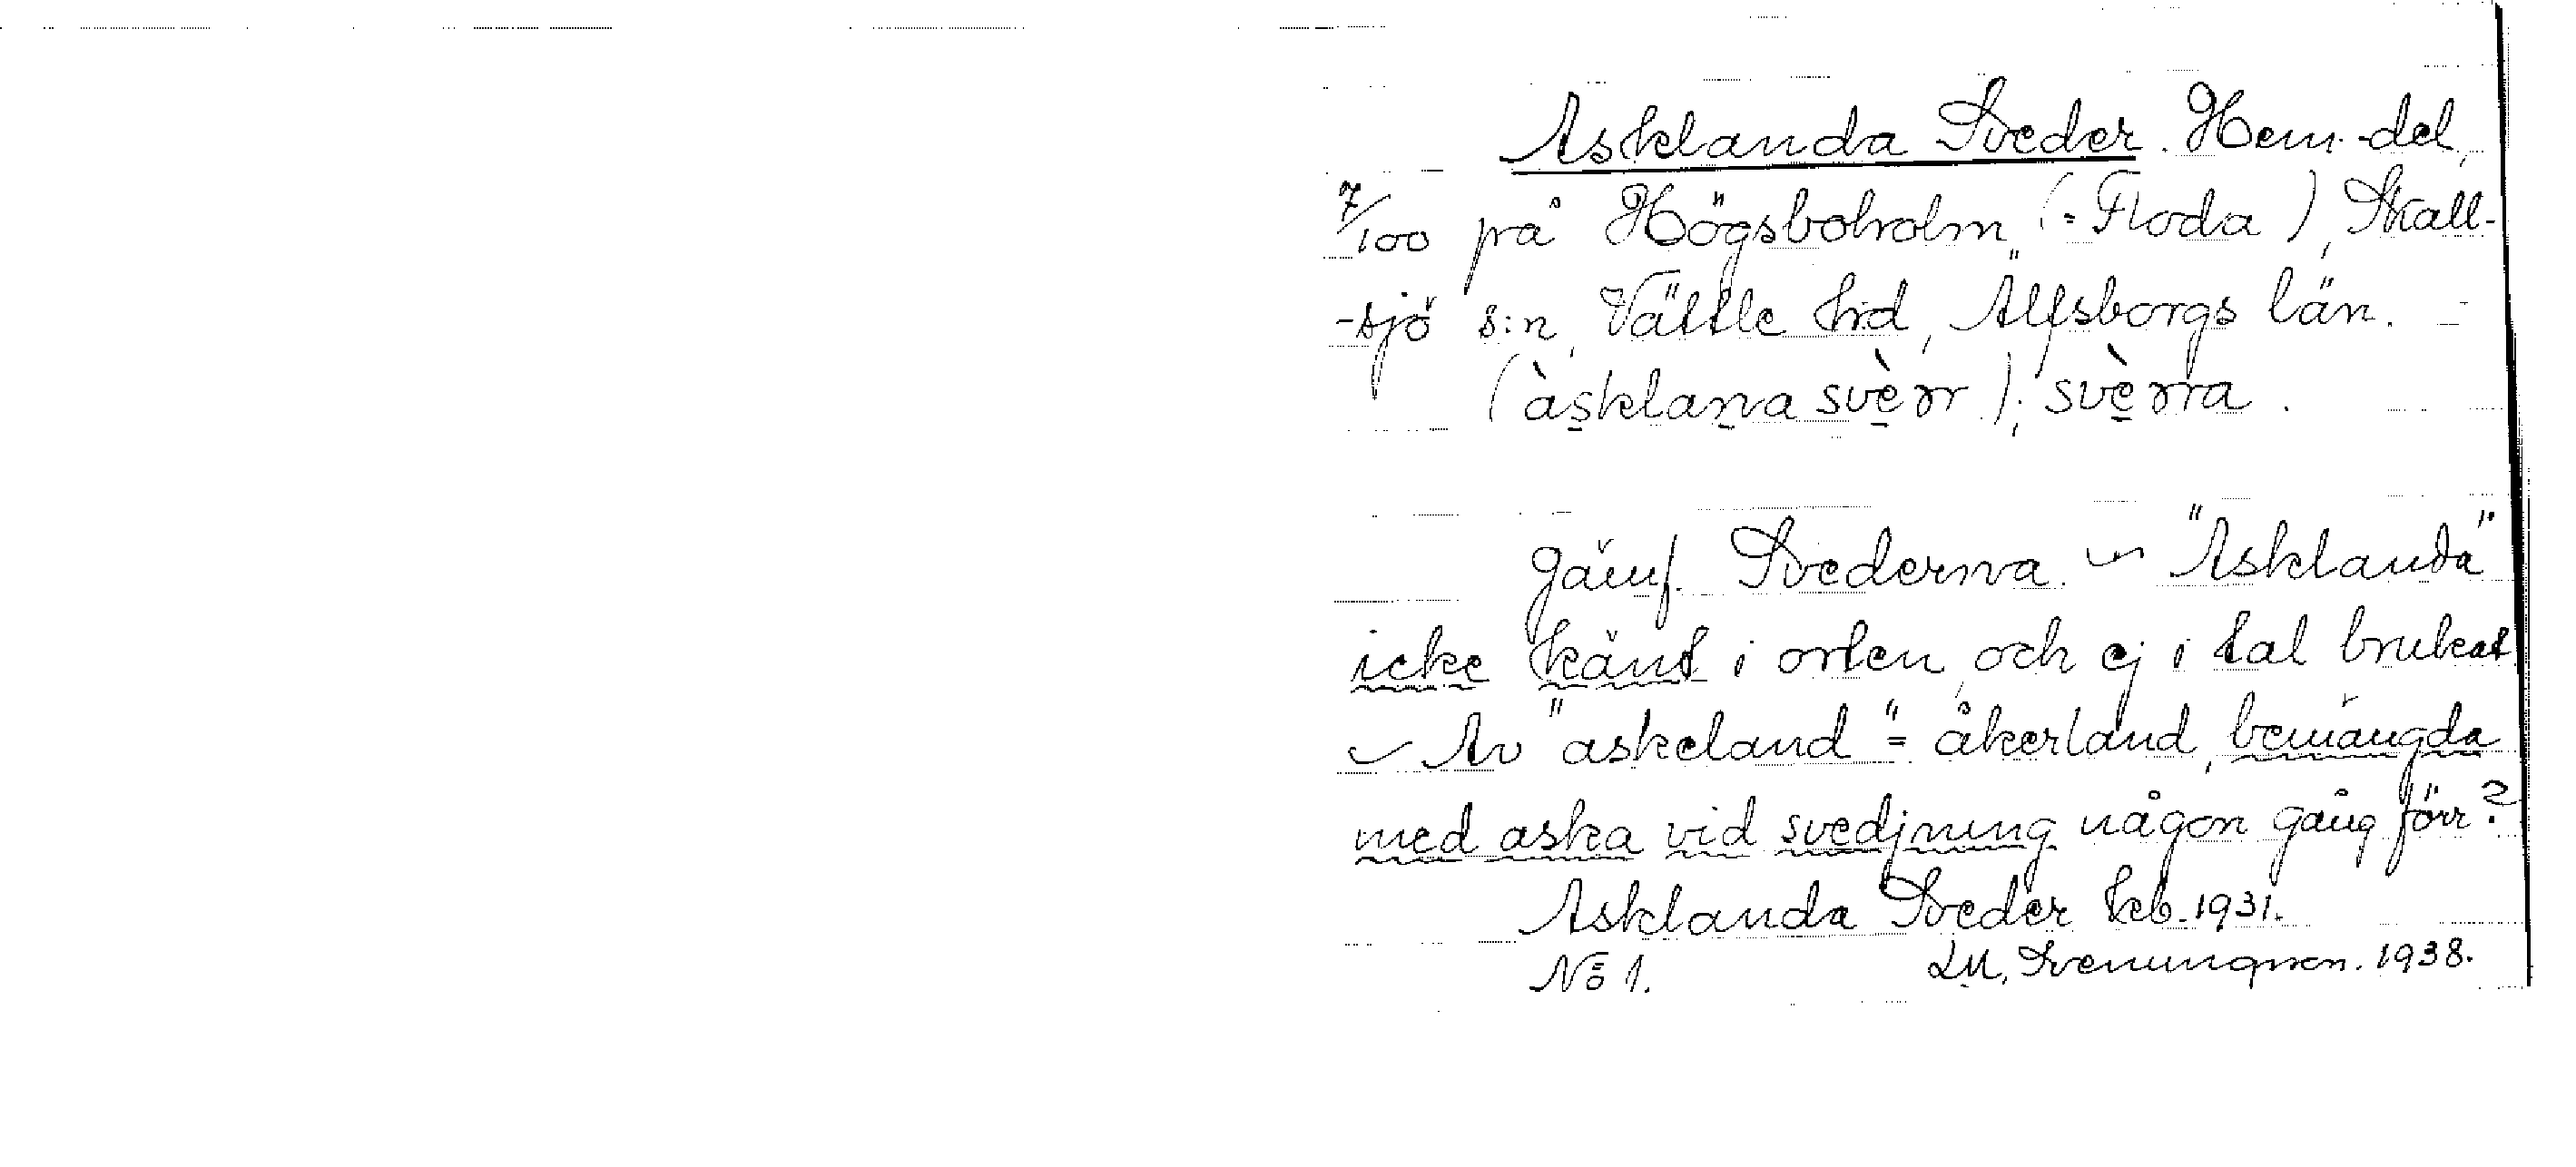 Asklanda Sveder. Hem.-del,
7/100 på Högsboholm (= Floda), Skall-
-sjö s:n, Vättle hd, Älfsborgs län. -
(àsklana svèrr); svèrra.
Jämf. Svederna. ~ "Asklanda"
icke känt i orten, och ej i tal brukat
~ Av "askeland" = åkerland, bemängda
med aska vid svedjning någon gång förr?
Asklanda Sveder kb. 1931.
No 1. LM. Svenungsson. 1938.